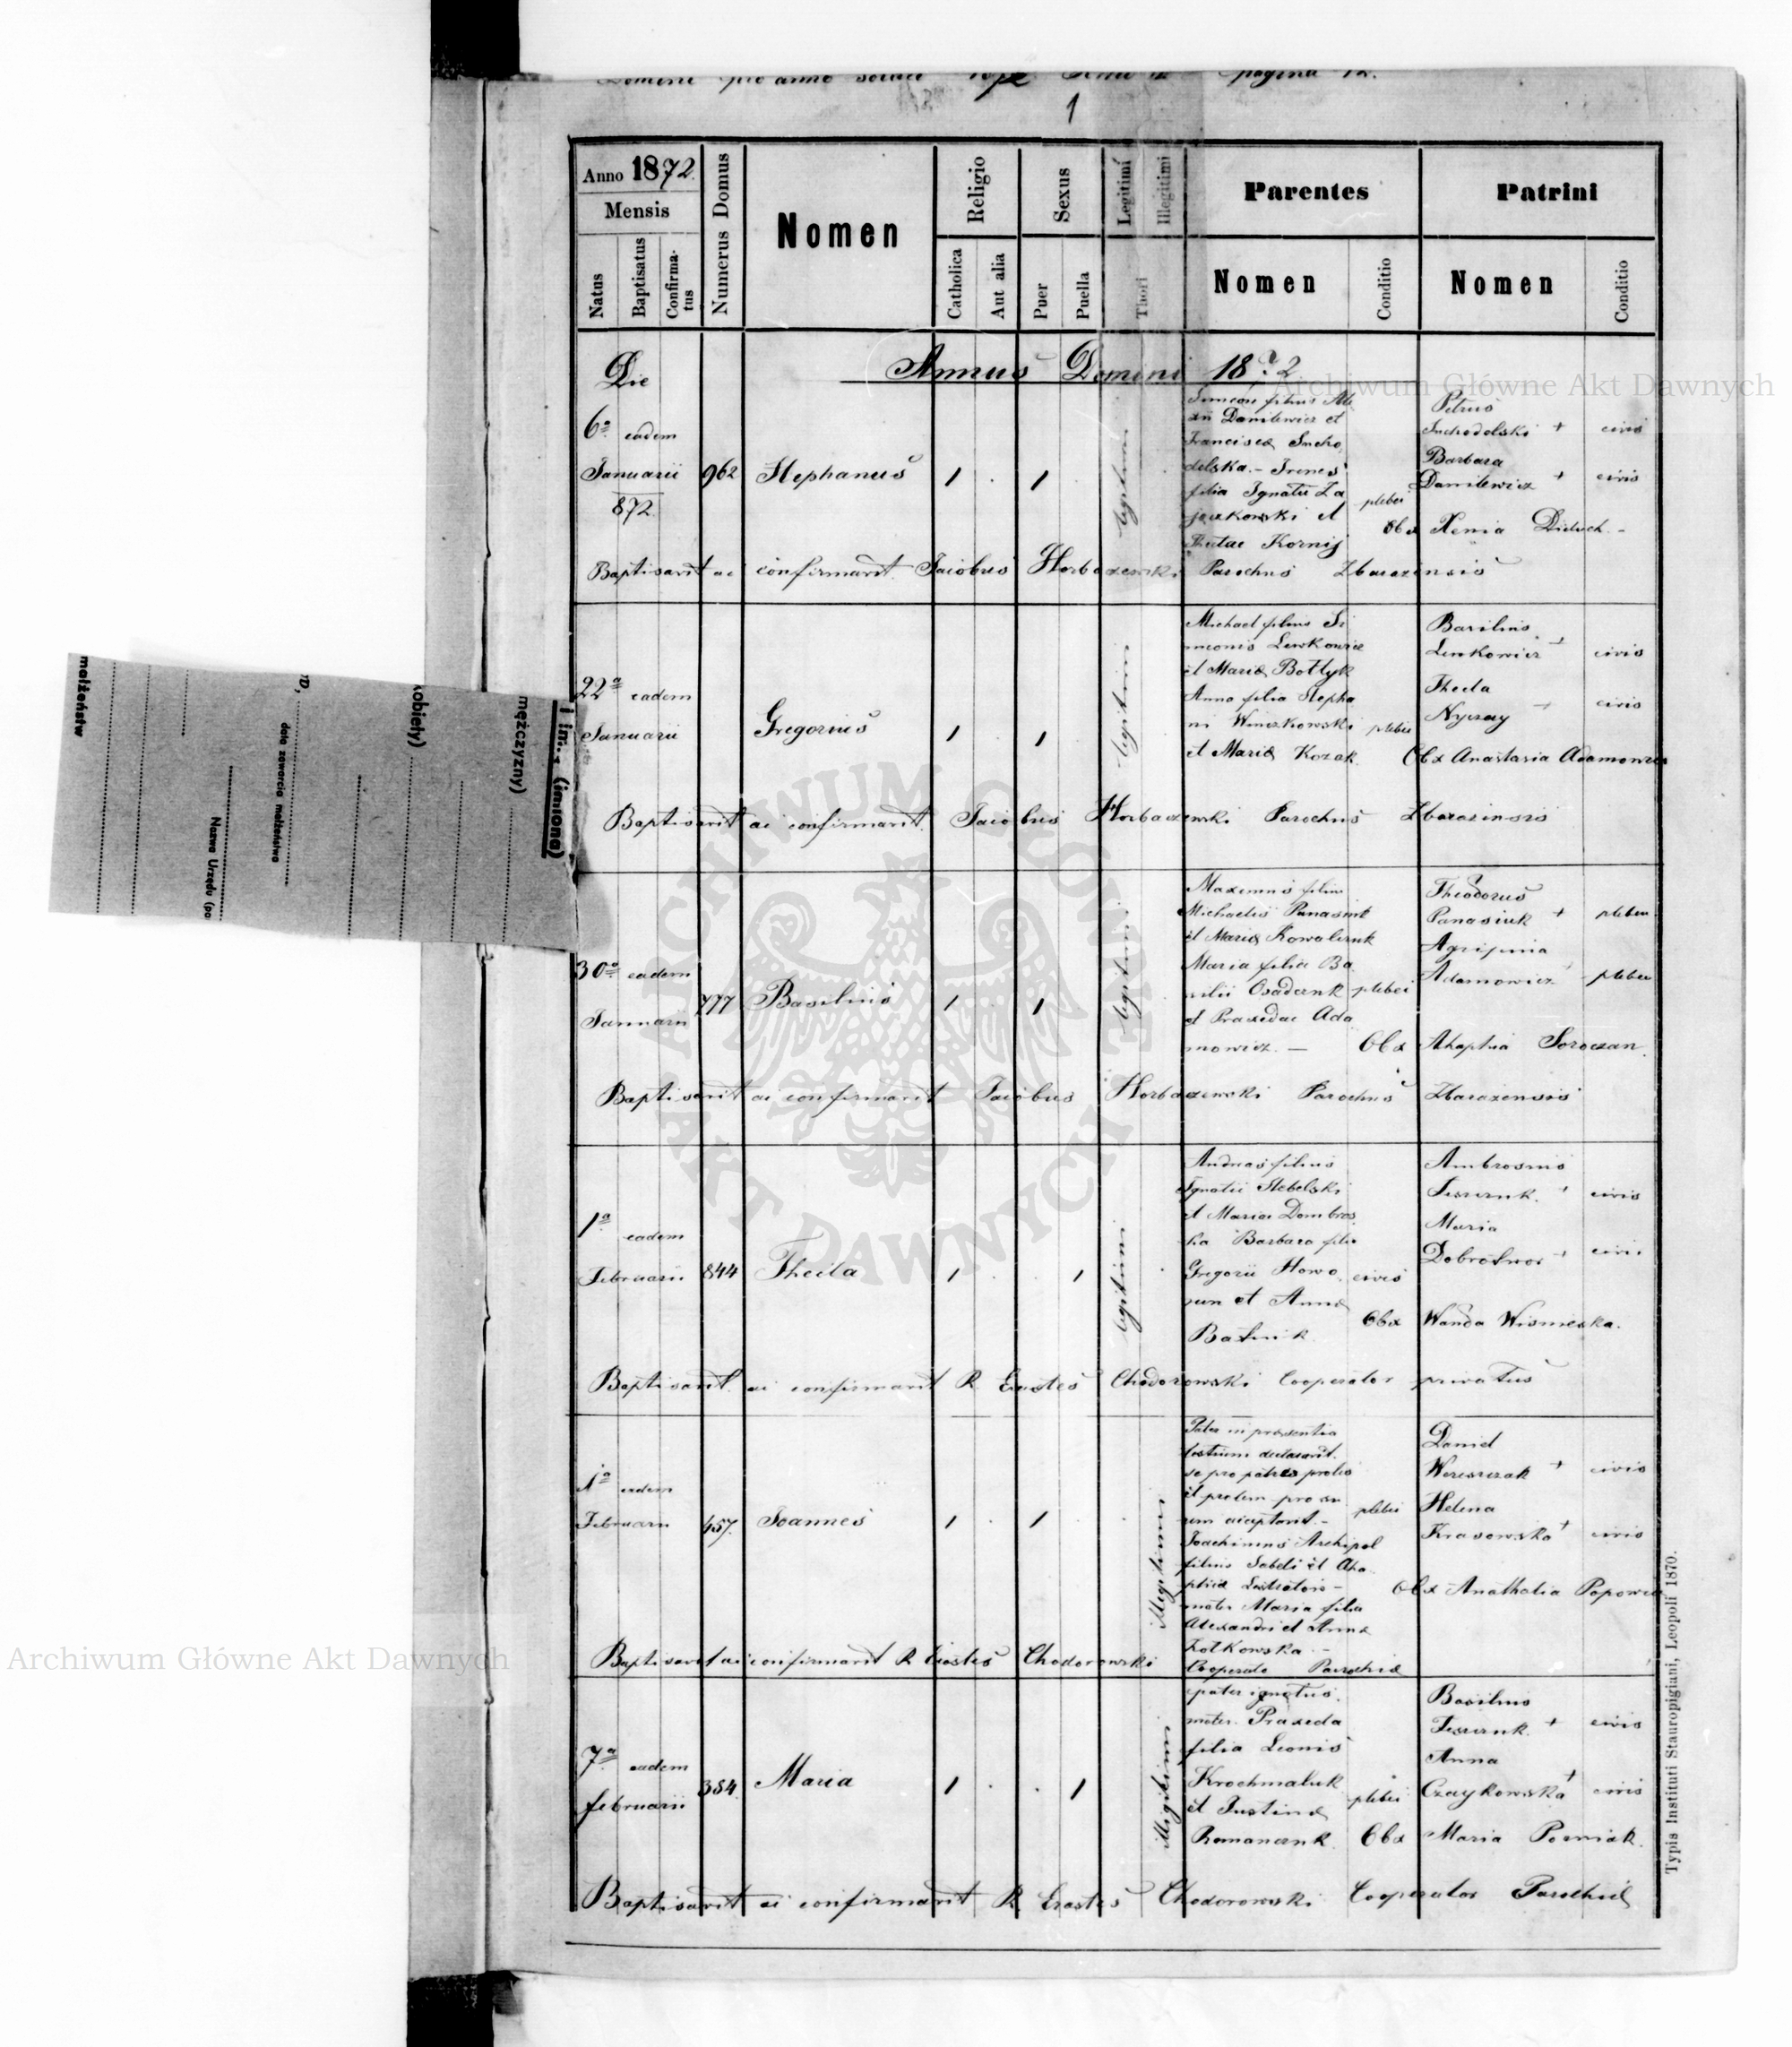 Domini pro anno pagina 12.
1
Anno 1872.
Mensis
Natus
Baptisatus
Confirmatus
Numerus Domus
Nomen
Religio
Catholica
Aut alia
Sexus
Puer
Puella
Legitimi
Illegitimi
Thori
Parentes
Nomen
Conditio
Patrini
Nomen
Conditio
Die
Annus Domini 1872
6ª eadem
Januarii
872
962
Stephanus
1 . 1
legitimi
Simeon filius Ale
xii Danilewicz et
Francisca Sucho
delska. – Irenes
filia Ignatii Za
jaczkowski et
Theclae Kornij
plebei
Petrus
Suchodolski + civis
Barbara
Danilewicz + civis
Obx Xenia Diduch –
Baptisavit ac confirmavit Jacobus Horbaczewski Parochus Zbarazensis
22ª eadem
Januarii
Gregorius
1 . 1
legitimi
Michael filius Si
meonis Lewkowicz
et Maria Bottyk
Anna filia Stepha
ni Winczkowski
et Maria Kozak
plebei
Basilius
Lewkowicz + civis
Thecla
Nyczay + civis
Obx Anastasia Adamowicz
Baptisavit ac confirmavit Jacobus Horbaczewski Parochus Zbarazensis
30ª eadem
Januarii
777
Basilius
1 . 1
legitimi
Maximus filius
Michaelis Panasiuk
et Maria Kowalczuk
Maria filia Ba
silii Osadczuk
et Praxedae Ada
mowicz. –
plebei
Theodorus
Panasiuk + plebeu
Agripina
Adamowicz + plebeu
Obx Ahaphia Soroczan.
Baptisavit ac confirmavit Jacobus Horbaczewski Parochus Zbarazensis
1ª eadem
Februarii
844
Thecla
1 . . 1
legitimi
Andreas filius
Ignatii Stebelski
et Maria Dombrows
ka Barbara filia
Gregorii Howo
run et Anna
Batiuik
civis
Ambrosius
Teszczuk. + civis
Maria
Dobrotwor + civis
Obx Wanda Wisnieska.
Baptisavit ac confirmavit R Erastes Chodorowski Cooperator privatus
1ª eadem
Februarii
457.
Joannes
1 . 1 .
illegitimi
Pater in praesentia
testium declaravit
se pro patre prolis
et prolem pro su
am acceptavit. –
Joachimus Archipol
filius
mater Maria filia
Alexandri et Anna
Zotkowska –
plebei
Daniel
Wereszczak + civis
Helena
Krasowska + civis
Obx Anatholia Popowicz
Baptisavit ac confirmavit R Erastes Chodorowski Cooperato Parochiæ
7ª eadem
februarii
384.
Maria
1 . . 1
illegitimi
pater ignotus.
mater. Praxeda
filia Leonis
Krochmaluk
et Justina
Romanczuk.
plebei
Basilius
Teszczuk. + civis
Anna
Czaykowska + civis
Obx Maria Pozniak.
Baptisavit ac confirmavit R Erastes Chodorowski Cooperator Parochiæ
Typis Instituti Stauropigiani, Leopoli 1870.
małżeństw
data zawarcia małżeństwa
Nazwa Urzędu (po
kobiety)
mężczyzny)
i im.. (imiona)
Archiwum Główne Akt Dawnych
Archiwum Główne Akt Dawnych
ARCHIWUM GŁÓWNE AKT DAWNYCH